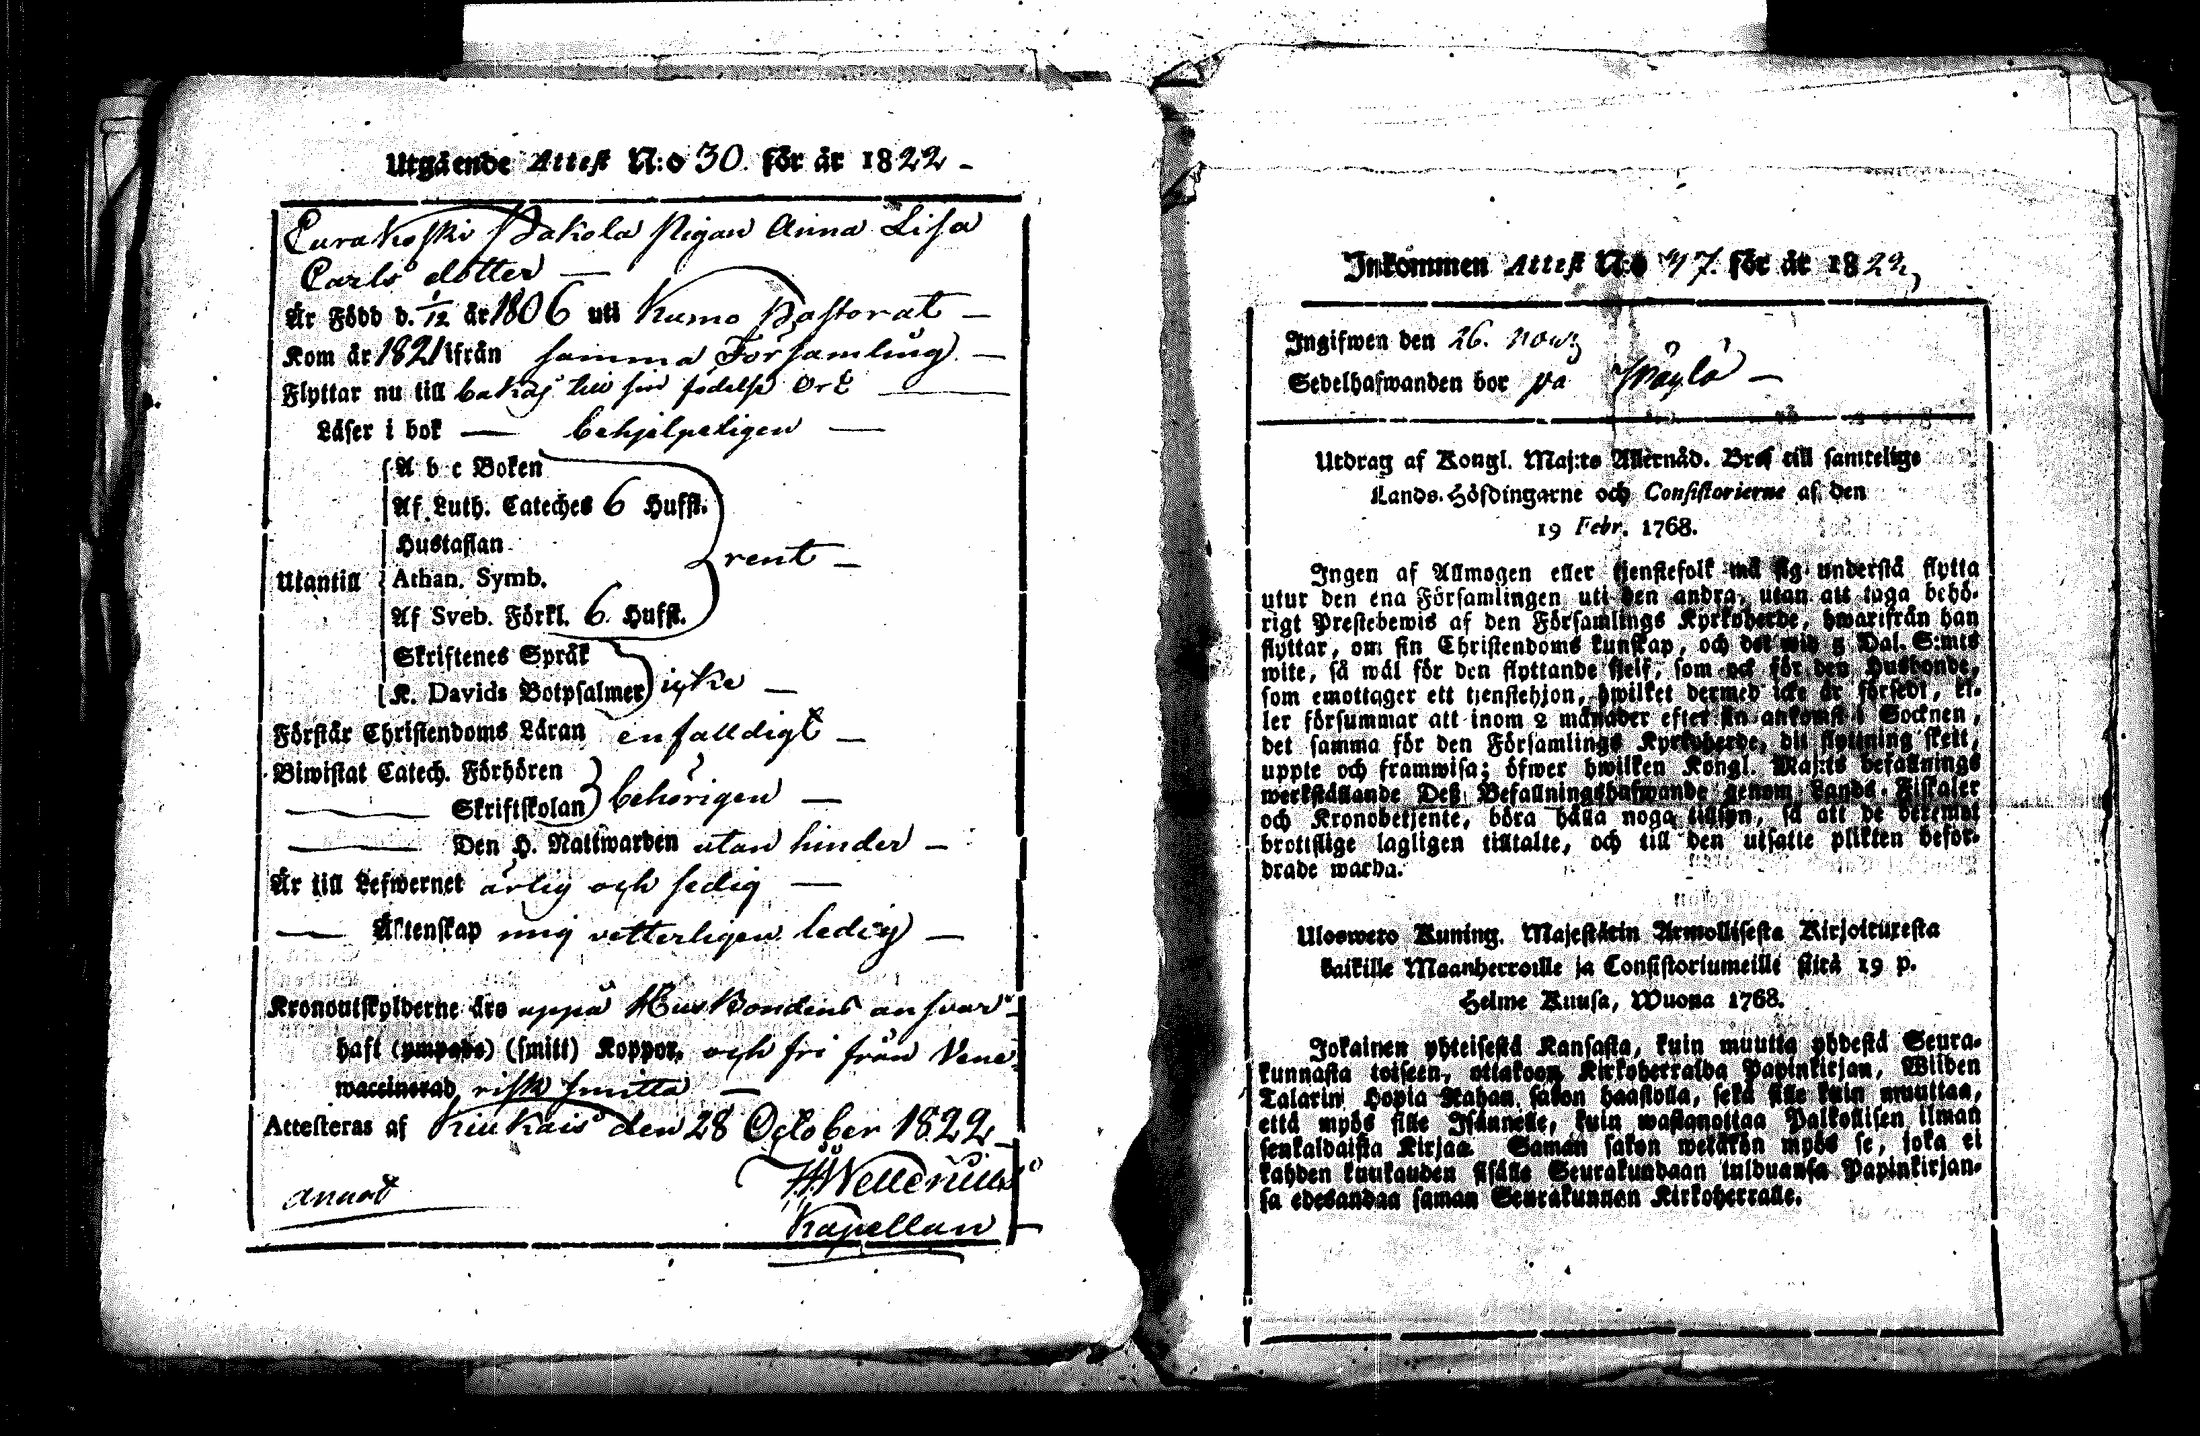 Utgående Attest N:o 30. för år 1822 -
Eurakoski Pakola Pigan Anna Lisa
Carls dotter —
Är Född d. 1/12 år 1806 uti Kumo Pastorat —
Kom år 1821 ifrån samma Församling. —
Flyttar nu till bakas till sin födelse Ort —
Läser i bok — behjelpeligen —
A b c Boken
Af Luth. Cateches 6 Hufst.
Hustaflan
rent —
Utantill Athan. Symb.
Af Sveb. Förkl. 6. Hufst.
Skriftenes Språk
K. Davids Botpsalmer icke —
Förstår Christendoms Läran enfaldigt —
Biwistat Catech. Förhören
— Skriftskolan behörigen —
— Den H. Nattwarden utan hinder —
Är till Lefwernet ärlig och sedig —
— Äktenskap mig vetterligen ledig —
Kronoutskylderne äro uppå Husbondens ansvar -
haft (ympade) (smitt) Koppor, och fri från Vene-
waccinerad risk smitta —
Attesteras af Kiukais den 28 October 1822 -
annot
Kapellan —
Inkommen Attest N:o 47. för år 1822,
Ingifwen den 26. Nov.
Sedelhafwanden bor på
Utdrag af Kongl. Maj:ts Allernåd. Bref till samtelige
Lands-Höfdingarne och Consistorierne af den
19 Febr. 1768.
Ingen af Allmogen eller tjenstefolk må sig understå flytta
utur den ena Församlingen uti den andra, utan att taga behö-
rigt Prestebewis af den Församlings Kyrkoherde, hwarifrån han
flyttar, om sin Christendoms kunskap, och det wid 5 Dal. S:mts
wite, så wäl för den flyttande sjelf, som ock för den Husbonde,
som emottager ett tjenstehjon, hwilket dermed icke är försedt, el-
ler försummar att inom 2 månader efter sin ankomst i Socknen,
det samma för den Församlings Kyrkoherde, dit flyttning skett,
uppte och framwisa; öfwer hwilken Kongl. Maj:ts befallnings
werkställande Deß Befallningshafwande genom Lands-Fiskaler
och Kronobetjente, böra hålla noga tillsyn, så att de deremot
brottslige lagligen tilltalte, och till den utsatte plikten beford-
drade warda.
Ulosweto Kuning. Majestätin Armollisesta Kirjoituxesta
kaikille Maanherroille ja Consistoriumeille siitä 19 p.
Helme Kuusa, Wuona 1768.
Jokainen yhteisestä Kansasta, kuin muutta yhdestä Seura-
kunnasta toiseen, ottakoon Kirkoherralda Papinkirjan, Wiiden
Talarin Hopia Rahan sakon haastolla, sekä sille kuin muuttaa,
että myös sille Isännelle, kuin wastanottaa Palkollisen ilman
senkaldaista Kirjaa. Saman sakon wetäkön myös se, joka ei
kahden kuukauden sisälle Seurakundaan tulduansa Papinkirjan-
sa edesandaa saman Seurakunnan Kirkoherralle.